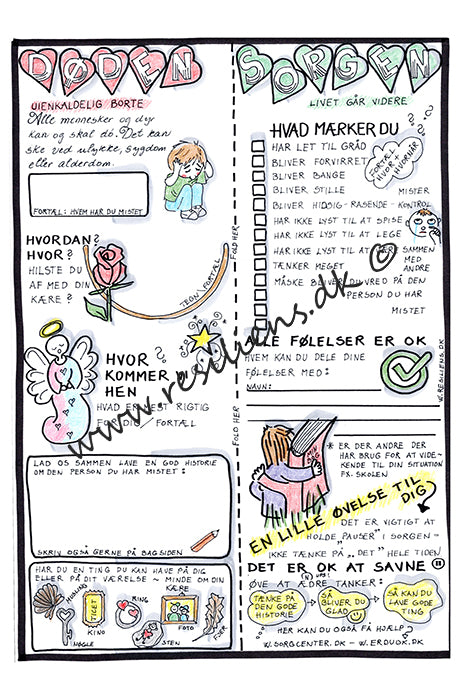 DØDEN
UIENKALDELIG BORTE
Alle mennesker og dyr
kan og skal dø. Det kan
ske ved ulykke, sygdom
eller alderdom.
FORTÆL: HVEM HAR DU MISTET
HVORDAN?
HVOR?
HILSTE DU
AF MED DIN
KÆRE?
TEGN/FORTÆL
HVOR
KOMMER
HEN
HVAD ER MEST RIGTIG
FOR DIG / FORTÆL
LAD OS SAMMEN LAVE EN GOD HISTORIE
OM DEN PERSON DU HAR MISTET:
SKRIV OGSÅ GERNE PÅ BAGSIDEN
HAR DU EN TING DU KAN HAVE PÅ DIG
ELLER PÅ DIT VÆRELSE ~ MINDE OM DIN
KÆRE
MUSLING
TICET
KINO
RING
FOTO
FJER
NØGLE
STEN
FOLD HER
FOLD HER
SORGEN
LIVET GÅR VIDERE
HVAD MÆRKER DU?
HAR LET TIL GRÅD
BLIVER FORVIRRET
BLIVER BANGE
BLIVER STILLE
BLIVER HIDSIG-RASENDE-KONTROL
MISTER
HAR IKKE LYST TIL AT SPISE
HAR IKKE LYST TIL AT LEGE
HAR IKKE LYST TIL AT VÆRE SAMMEN
MED
ANDRE
TÆNKER MEGET
MÅSKE BLIVER DU VRED PÅ DEN
PERSON DU HAR
MISTET
FORTÆL
HVOR
HVORNÅR
ALLE FØLELSER ER OK
HVEM KAN DU DELE DINE
FØLELSER MED:
NAVN:
W.RESILIENS.DK
* ER DER ANDRE DER
HAR BRUG FOR AT VIDE-
KENDE TIL DIN SITUATION
FX. SKOLEN
EN LILLE ØVELSE TIL
DIG
DET ER VIGTIGT AT
HOLDE "PAUSER" I SORGEN-
IKKE TÆNKE PÅ "DET" HELE TIDEN
DET ER OK AT SAVNE
ØVE AT ÆDRE TANKER:
TÆNKE PÅ
DEN GODE
HISTORIE
SÅ
BLIVER DU
GLAD
SÅ KAN DU
LAVE GODE
TING
HER KAN DU OGSÅ FÅ HJÆLP
W.SORGCENTER.DK - W.ERDUOK.DK
www.resiliens.dk ©